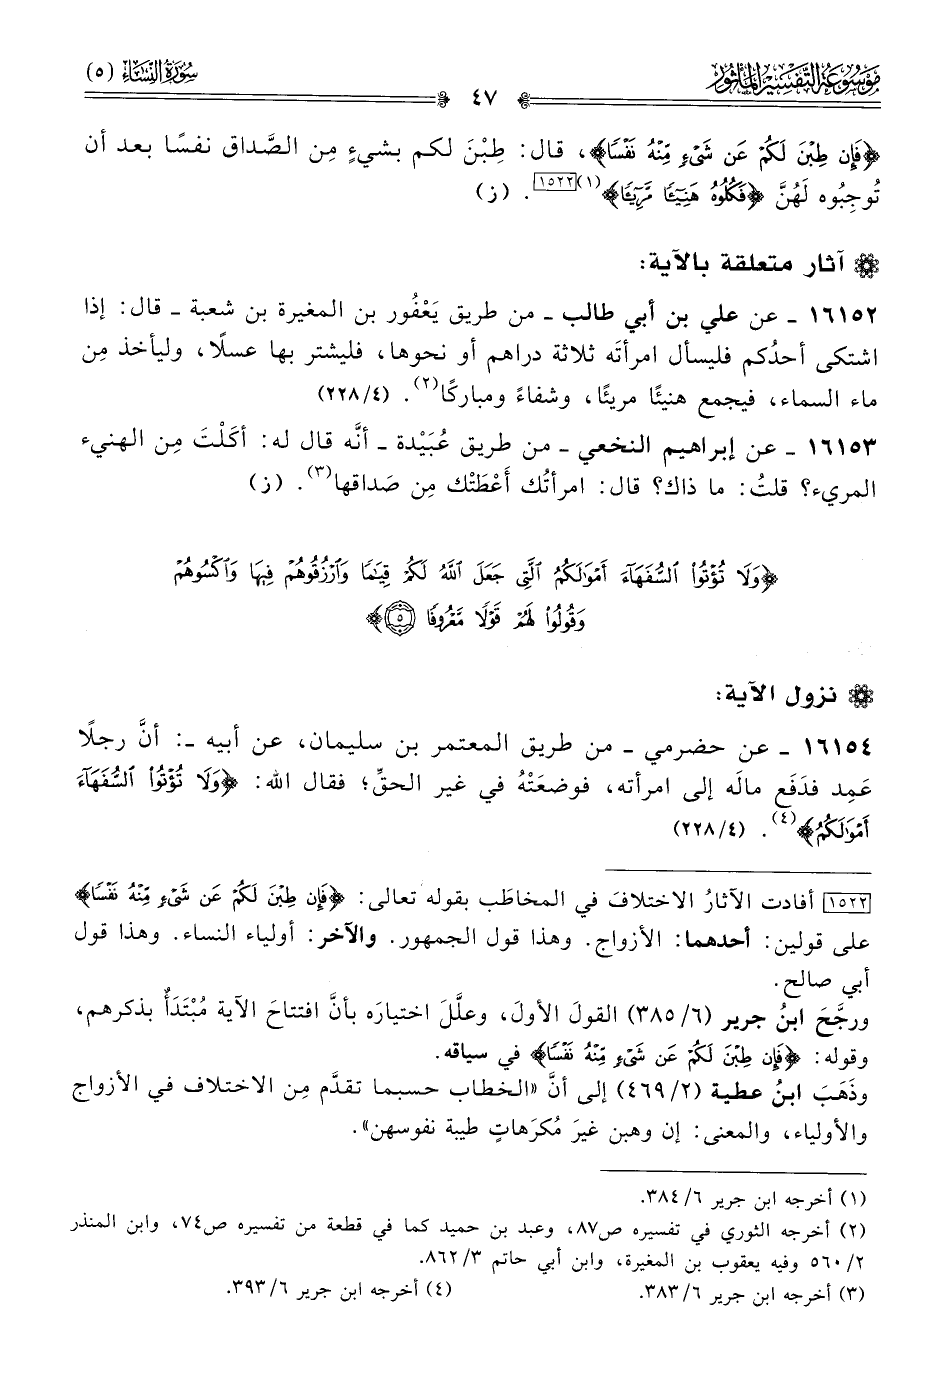 مَوْسُوعَةُ التَّفْسِيرِ المَأْثُور
٤٧
سُورَةُ النِّسَاءِ (٥)
﴿فَإِن طِبْنَ لَكُمْ عَن شَيْءٍ مِّنْهُ نَفْسًا﴾، قال: طِبْنَ لكم بشيءٍ مِن الصَّداق نفسًا بعد أن
تُوجِبُوه لَهُنَّ ﴿فَكُلُوهُ هَنِيٓـًٔا مَّرِيٓـًٔا﴾(١)[١٥٢٢]. (ز)
آثار متعلقة بالآية:
١٦١٥٢ ـ عن علي بن أبي طالب ـ من طريق يَعْفُور بن المغيرة بن شعبة ـ قال: إذا
اشتكى أحدُكم فليسأل امرأتَه ثلاثة دراهم أو نحوها، فليشتر بها عسلًا، وليأخذ مِن
ماء السماء، فيجمع هنيئًا مريئًا، وشفاءً ومباركًا(٢). (٢٢٨/٤)
١٦١٥٣ ـ عن إبراهيم النخعي ـ من طريق عُبَيْدة ـ أنَّه قال له: أكَلْتَ مِن الهنيء
المريء؟ قلتُ: ما ذاك؟ قال: امرأتُك أَعْطَتْك مِن صَداقها(٣). (ز)
﴿وَلَا تُؤْتُوا۟ ٱلسُّفَهَآءَ أَمْوَٰلَكُمُ ٱلَّتِى جَعَلَ ٱللَّهُ لَكُمْ قِيَٰمًا وَٱرْزُقُوهُمْ فِيهَا وَٱكْسُوهُمْ
وَقُولُوا۟ لَهُمْ قَوْلًا مَّعْرُوفًا ٥﴾
نزول الآية:
١٦١٥٤ ـ عن حضرمي ـ من طريق المعتمر بن سليمان، عن أبيه ـ: أنَّ رجلًا
عَمِد فدَفَع مالَه إلى امرأته، فوضعَتْهُ في غير الحقِّ؛ فقال الله: ﴿وَلَا تُؤْتُوا۟ ٱلسُّفَهَآءَ
أَمْوَٰلَكُمُ﴾(٤). (٢٢٨/٤)
[١٥٢٢] أفادت الآثارُ الاختلافَ في المخاطَب بقوله تعالى: ﴿فَإِن طِبْنَ لَكُمْ عَن شَيْءٍ مِّنْهُ نَفْسًا﴾
على قولين: أحدهما: الأزواج. وهذا قول الجمهور. والآخر: أولياء النساء. وهذا قول
أبي صالح.
ورجَّحَ ابنُ جرير (٣٨٥/٦) القولَ الأولَ، وعلَّلَ اختيارَه بأنَّ افتتاحَ الآية مُبْتَدَأٌ بذكرهم،
وقوله: ﴿فَإِن طِبْنَ لَكُمْ عَن شَيْءٍ مِّنْهُ نَفْسًا﴾ في سياقه.
وذَهَبَ ابنُ عطية (٤٦٩/٢) إلى أنَّ «الخطاب حسبما تقدَّم مِن الاختلاف في الأزواج
والأولياء، والمعنى: إن وهبن غيرَ مُكرَهاتٍ طيبة نفوسهن».
(١) أخرجه ابن جرير ٣٨٤/٦.
(٢) أخرجه الثوري في تفسيره ص٨٧، وعبد بن حميد كما في قطعة من تفسيره ص٧٤، وابن المنذر
٥٦٠/٢ وفيه يعقوب بن المغيرة، وابن أبي حاتم ٨٦٢/٣.
(٣) أخرجه ابن جرير ٣٨٣/٦. (٤) أخرجه ابن جرير ٣٩٣/٦.